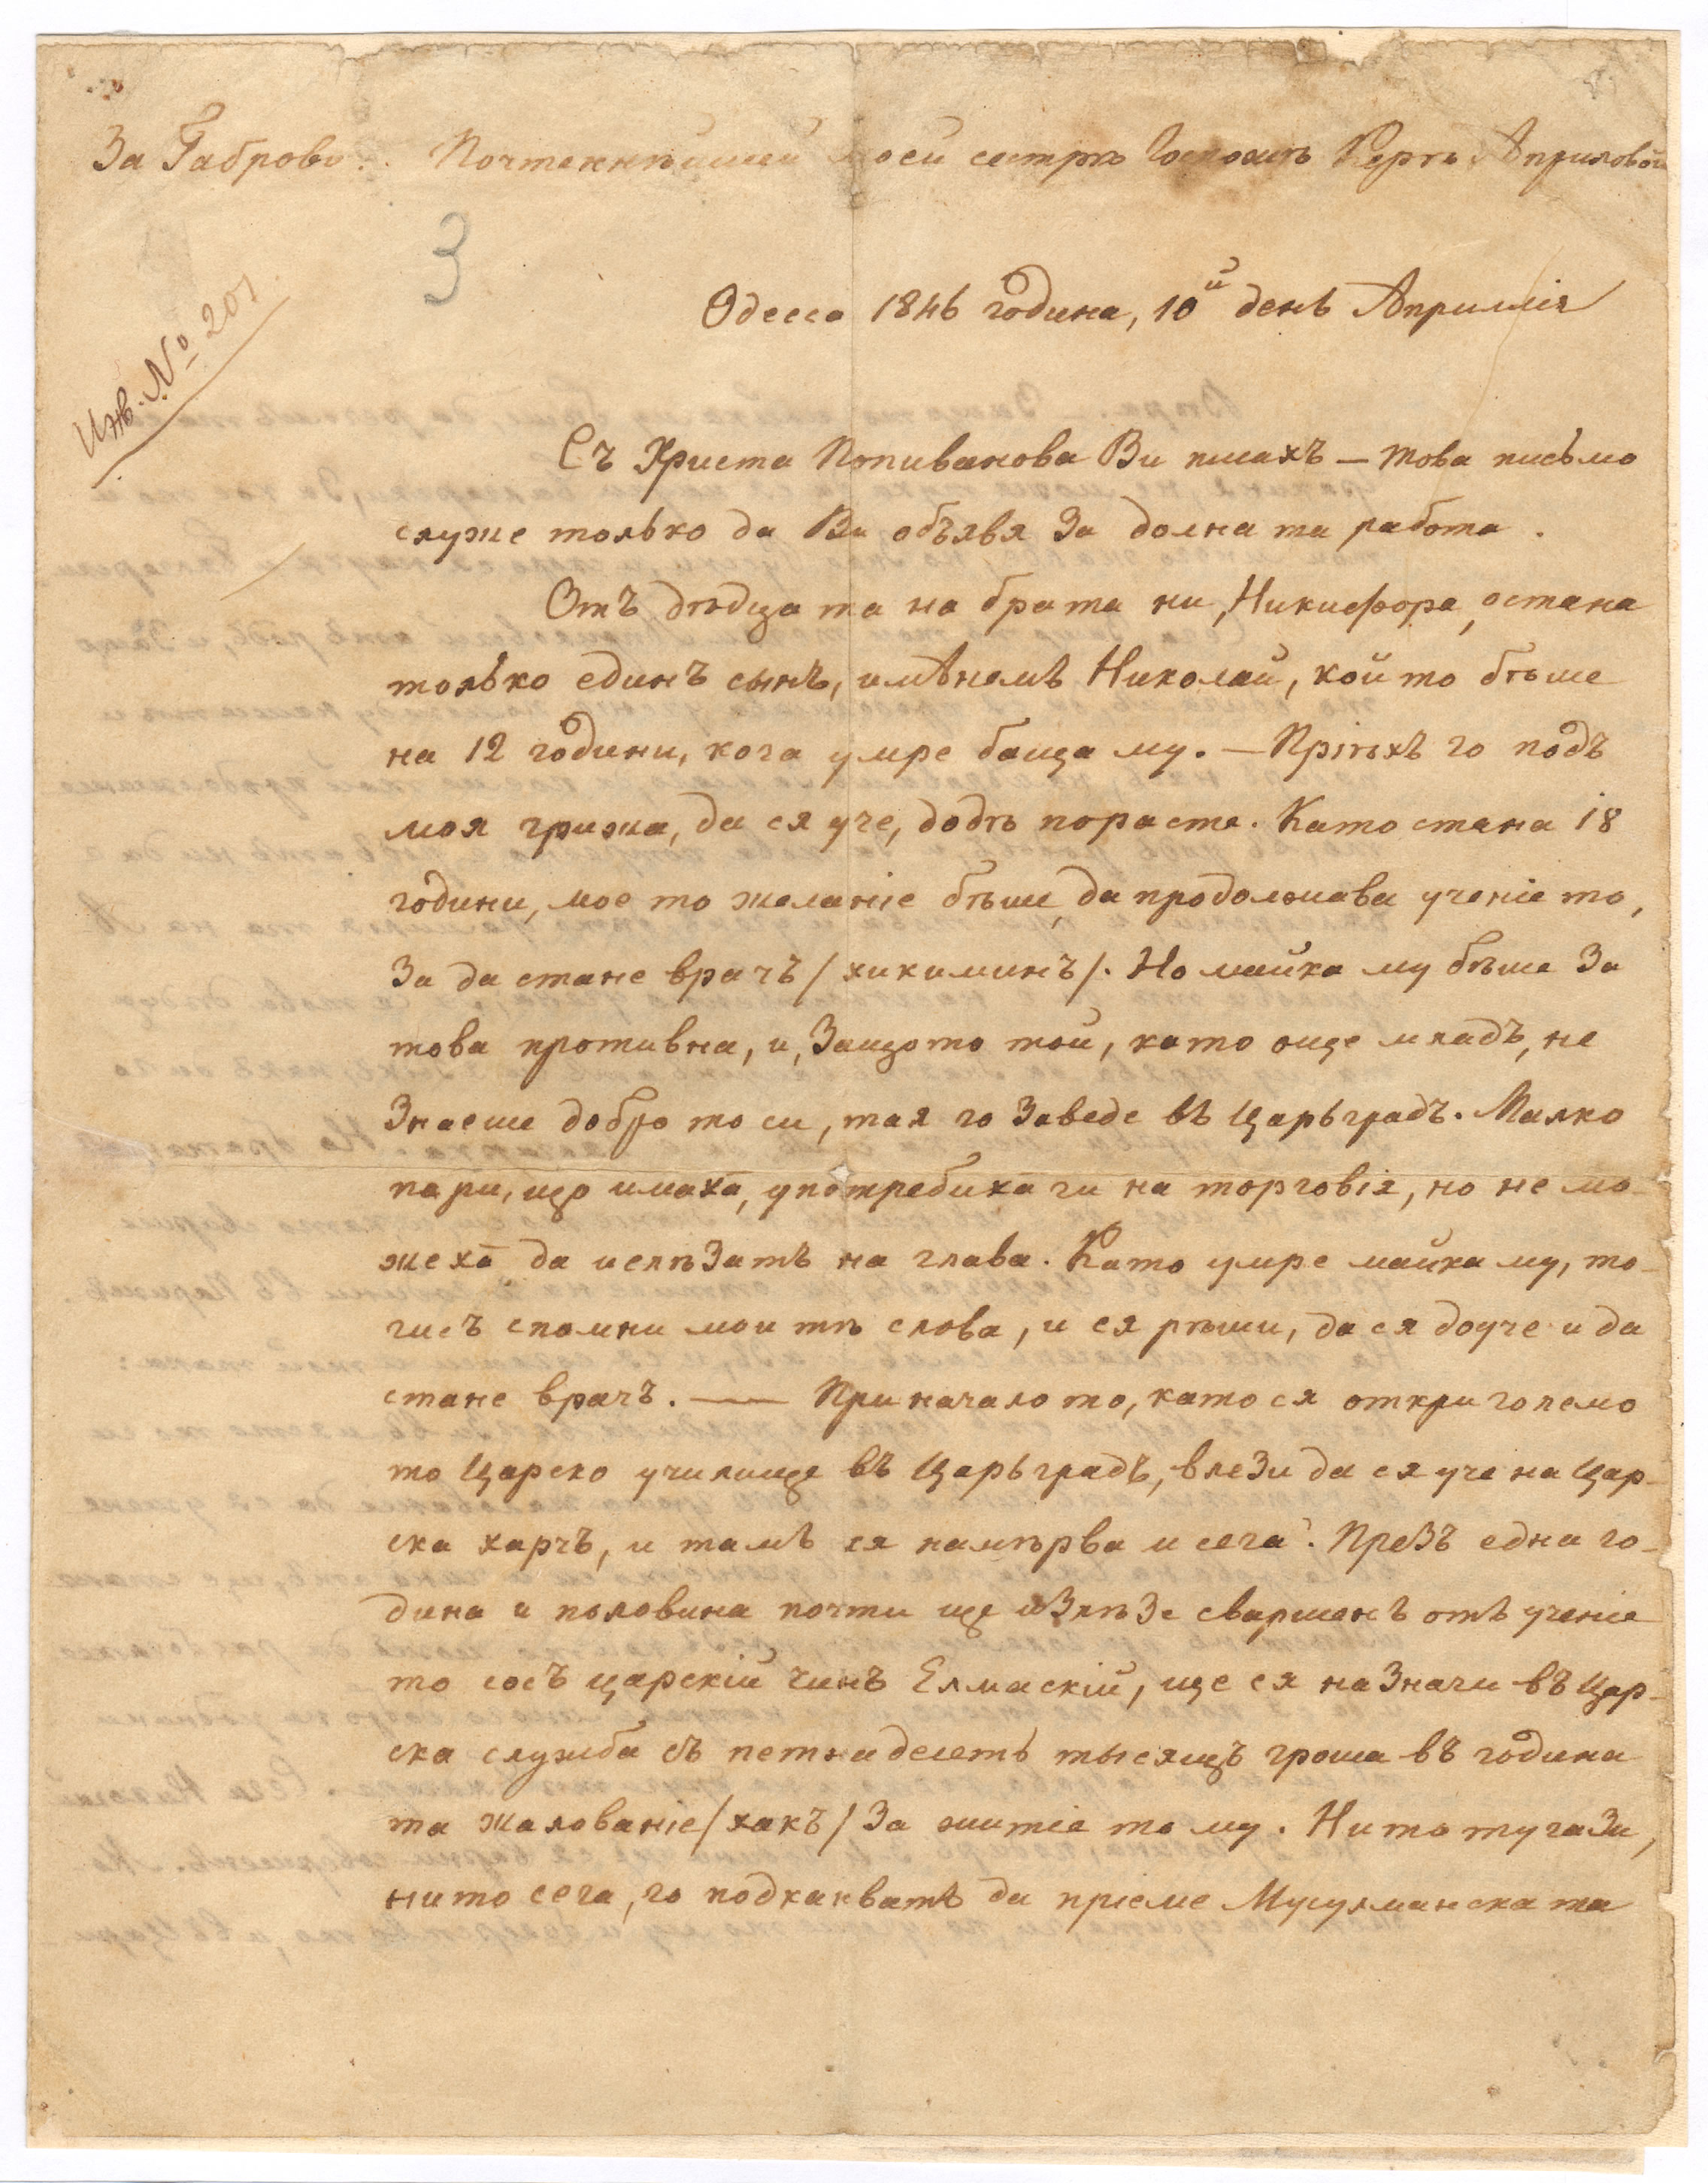 За Габрово. Почтеннѣйшей моей сестрѣ Госпожѣ Керѣ Априловой
3
Инв. № 201
Одесса 1846 година, 10й день Априлліа
Съ Христа Попиванова Ви писахъ — това письмо
служе только да Ви объявя за долна та работа.
Отъ дѣдца та на брата ни, Никифора, остана
только единъ сынъ, имѧнемъ Николай, кой то бѣше
на 12 години, кога умре баща му. — Пріѣхъ го подъ
моя грижа, да ся уче, додѣ порасте. Като стана 18
години, мое то желаніе бѣше, да продолжава ученіе то,
за да стане врачъ / хикиминъ /. Но майка му бѣше за
това противна, и, защото той, като още младъ, не
знаеше добро то си, тая го заведе въ Царьградъ. Малко
пари, що имаха, употребиха ги на торговія, но не мо-
жеха да излѣзатъ на глава. Като умре майка му, то-
гисъ спомни мои тѣ слова, и ся рѣши, да ся доуче и да
стане врачъ. — При начало то, като ся откри големо
то Царско училище въ Царьградъ, влези да ся уче на Цар-
ска харчъ, и тамъ ся намѣрва и сега. Презъ една го-
дина и половина почти ще излѣзе свършенъ отъ ученіе
то сосъ царскій чинъ Елмаскій, ще ся назначи въ Цар-
ска служба съ петнадесеть тысящъ гроша въ година
та жалованіе / хакъ / за житіе то му. Нито тугази,
нито сега, го подканватъ да пріеме Мусулманска та